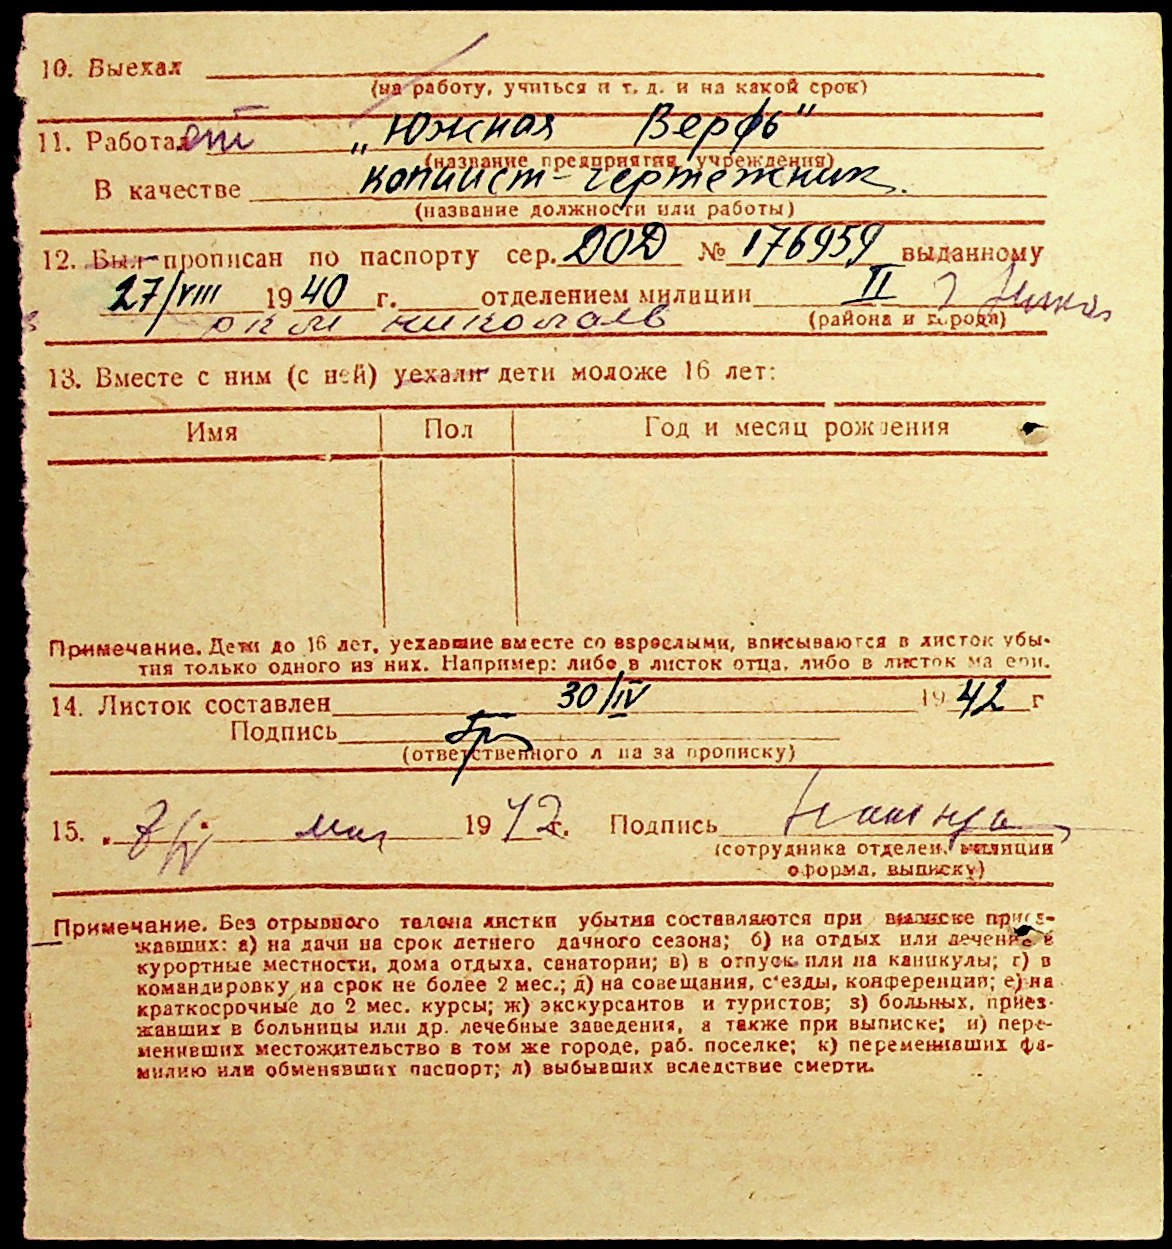 10. Выехал
(на работу, учиться и т. д. и на какой срок)
11. Работает „Южная Верфь"
(название предприятия, учреждения)
В качестве копиист-чертежник.
(название должности или работы)
12. Был прописан по паспорту сер. ДОД № 176959 выданному
27/VIII 1940 г. отделением милиции II г
(района и города)
николаев
13. Вместе с ним (с ней) уехали дети моложе 16 лет:
Имя Пол Год и месяц рождения
Примечание. Дети до 16 лет, уехавшие вместе со взрослыми, вписываются в листок убы-
тия только одного из них. Например: либо в листок отца, либо в листок матери.
14. Листок составлен 30/IV 1942 г
Подпись
(ответственного лица за прописку)
15. мая 1942 г. Подпись
(сотрудника отделен. милиции
оформл. выписку)
Примечание. Без отрывного талона листки убытия составляются при выписке приез-
жавших: а) на дачи на срок летнего дачного сезона; б) на отдых или лечение в
курортные местности, дома отдыха, санатории; в) в отпуск или на каникулы; г) в
командировку на срок не более 2 мес.; д) на совещания, с'езды, конференции; е) на
краткосрочные до 2 мес. курсы; ж) экскурсантов и туристов; з) больных, приез-
жавших в больницы или др. лечебные заведения, а также при выписке; и) пере-
менивших местожительство в том же городе, раб. поселке; к) переменивших фа-
милию или обменявших паспорт; л) выбывших вследствие смерти.